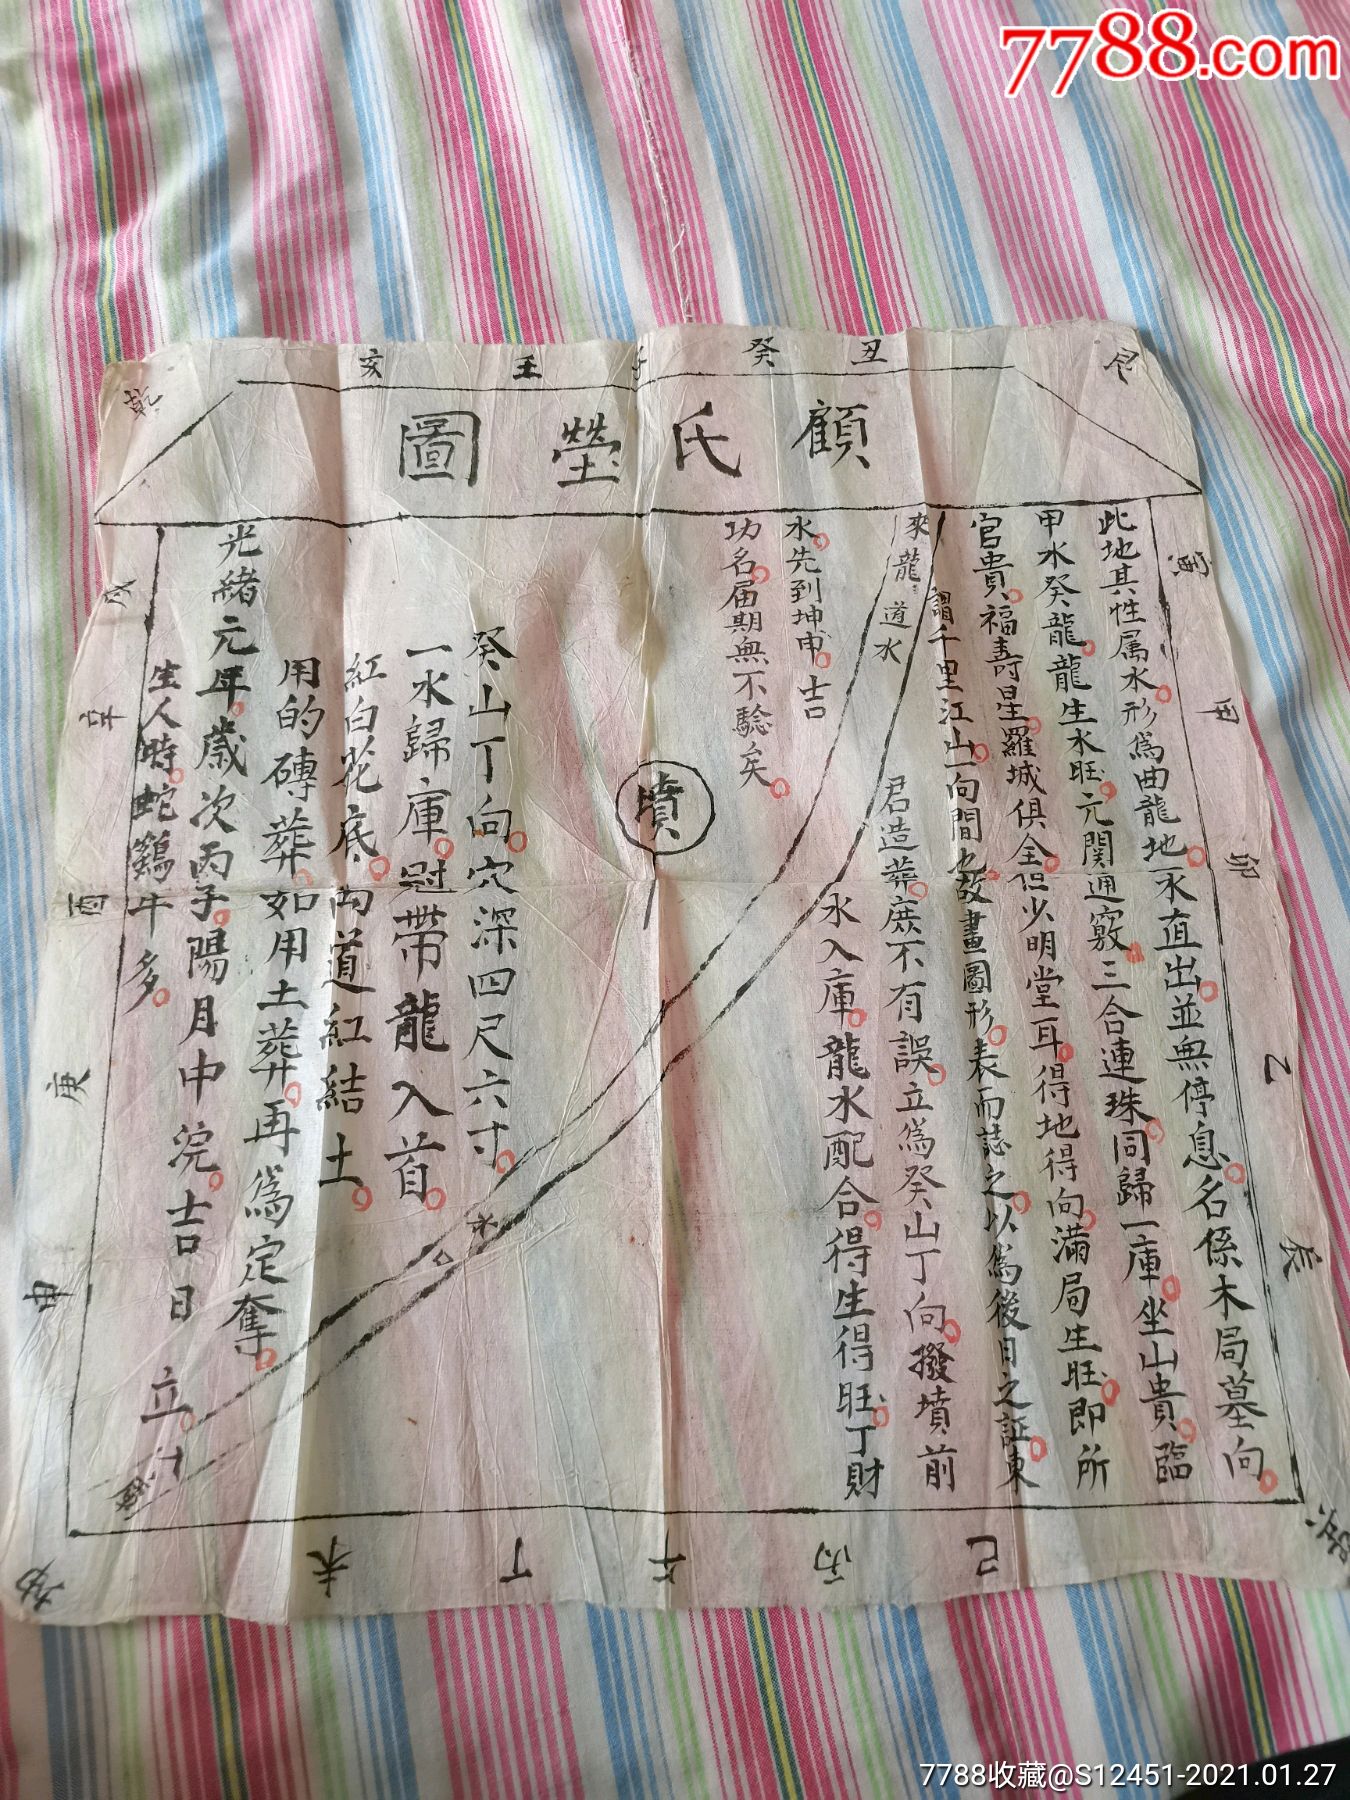 7788.com
亥 壬 子 癸 丑 艮
乾
顧氏塋圖
寅 甲 卯 乙 辰 巽
此地其性属水形為曲龍地水直出並無停息名係木局墓向
甲水癸龍龍生水旺元関通竅三合連珠同歸一庫坐山貴臨
官貴福壽星羅城俱全但少明堂耳得地得向滿局生旺即所
謂千里江山一向間也故畫圖形表而誌之以為後目之証東
來龍道水
君造葬庶不有誤立為癸山丁向撥墳前
水先到坤申吉
水入庫龍水配合得生得旺丁財
功名届期無不騐矣
墳
癸山丁向穴深四尺六寸
一水歸庫冠帶龍入首
紅白花底両道紅結土
用的磚葬如用土葬再為定奪
光緒元年歲次丙子陽月中浣吉日立
生人時蛇鷄牛多
水
戌 辛 酉 庚 申
坤 未 丁 午 丙 巳
7788收藏@S12451-2021.01.27